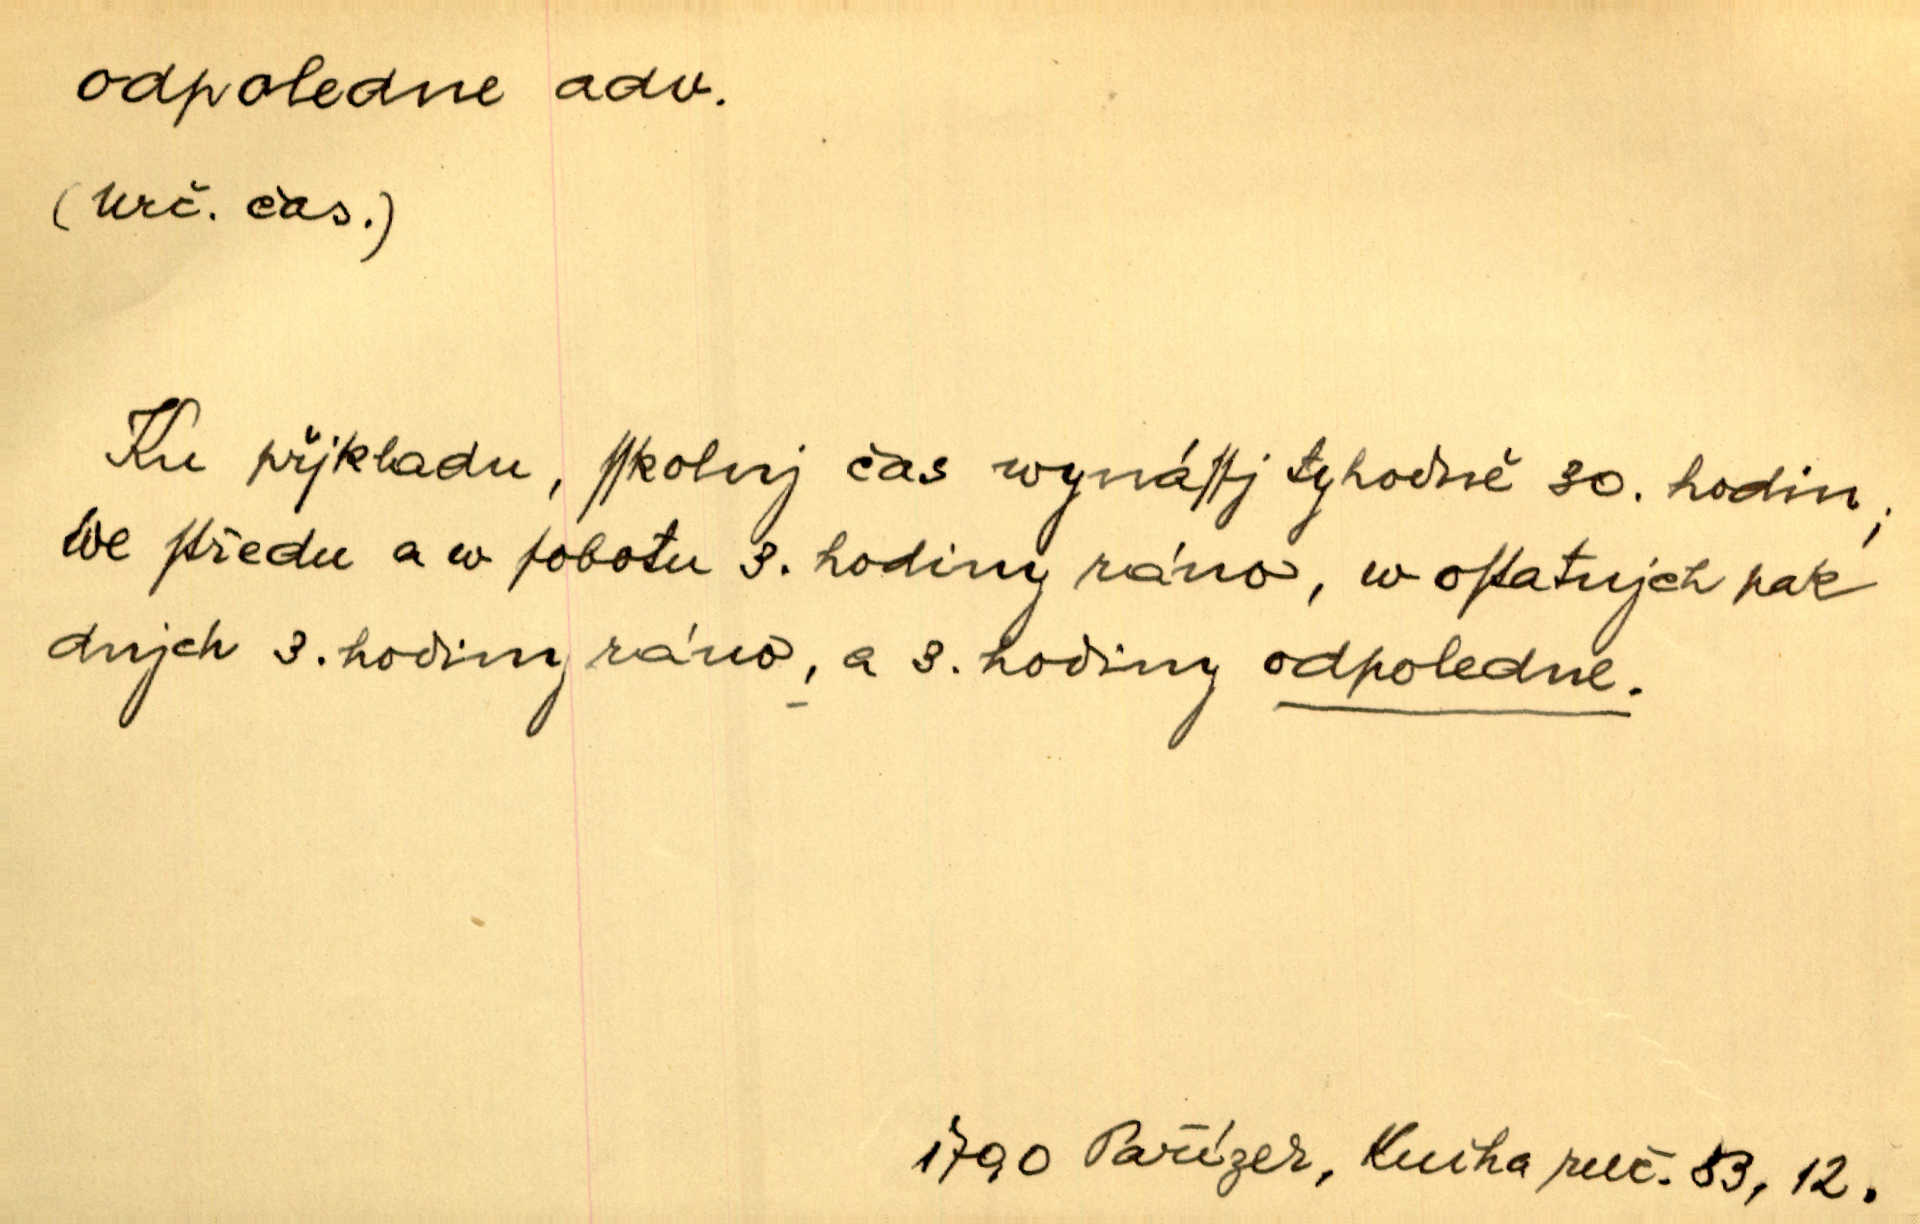 odpoledne adv.
(Urč. čas.)
Ku přjkladu, sſkolnj čas wynáſſj tyhodně 30. hodin,
We ſtředu a w ſobotu 3. hodiny ráno, w oſtatnjch pak
dnjch 3. hodiny ráno, a 3. hodiny odpoledne.
1790 Pařízek, Kniha ruč. 83, 12.